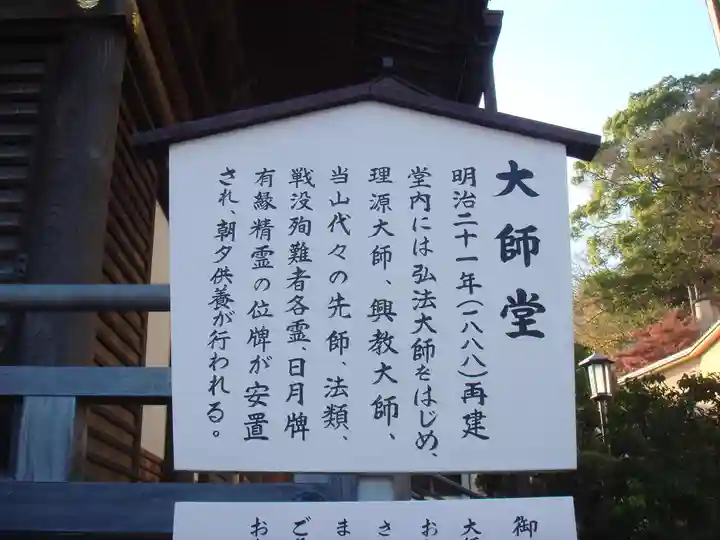 大師堂
明治二十一年(一八八八)再建
堂内には弘法大師をはじめ、
理源大師、興教大師、
当山代々の先師、法類、
戦没殉難者各霊、日月牌
有縁精霊の位牌が安置
され、朝夕供養が行われる。
御
大師
お
さ
ま
ご
お